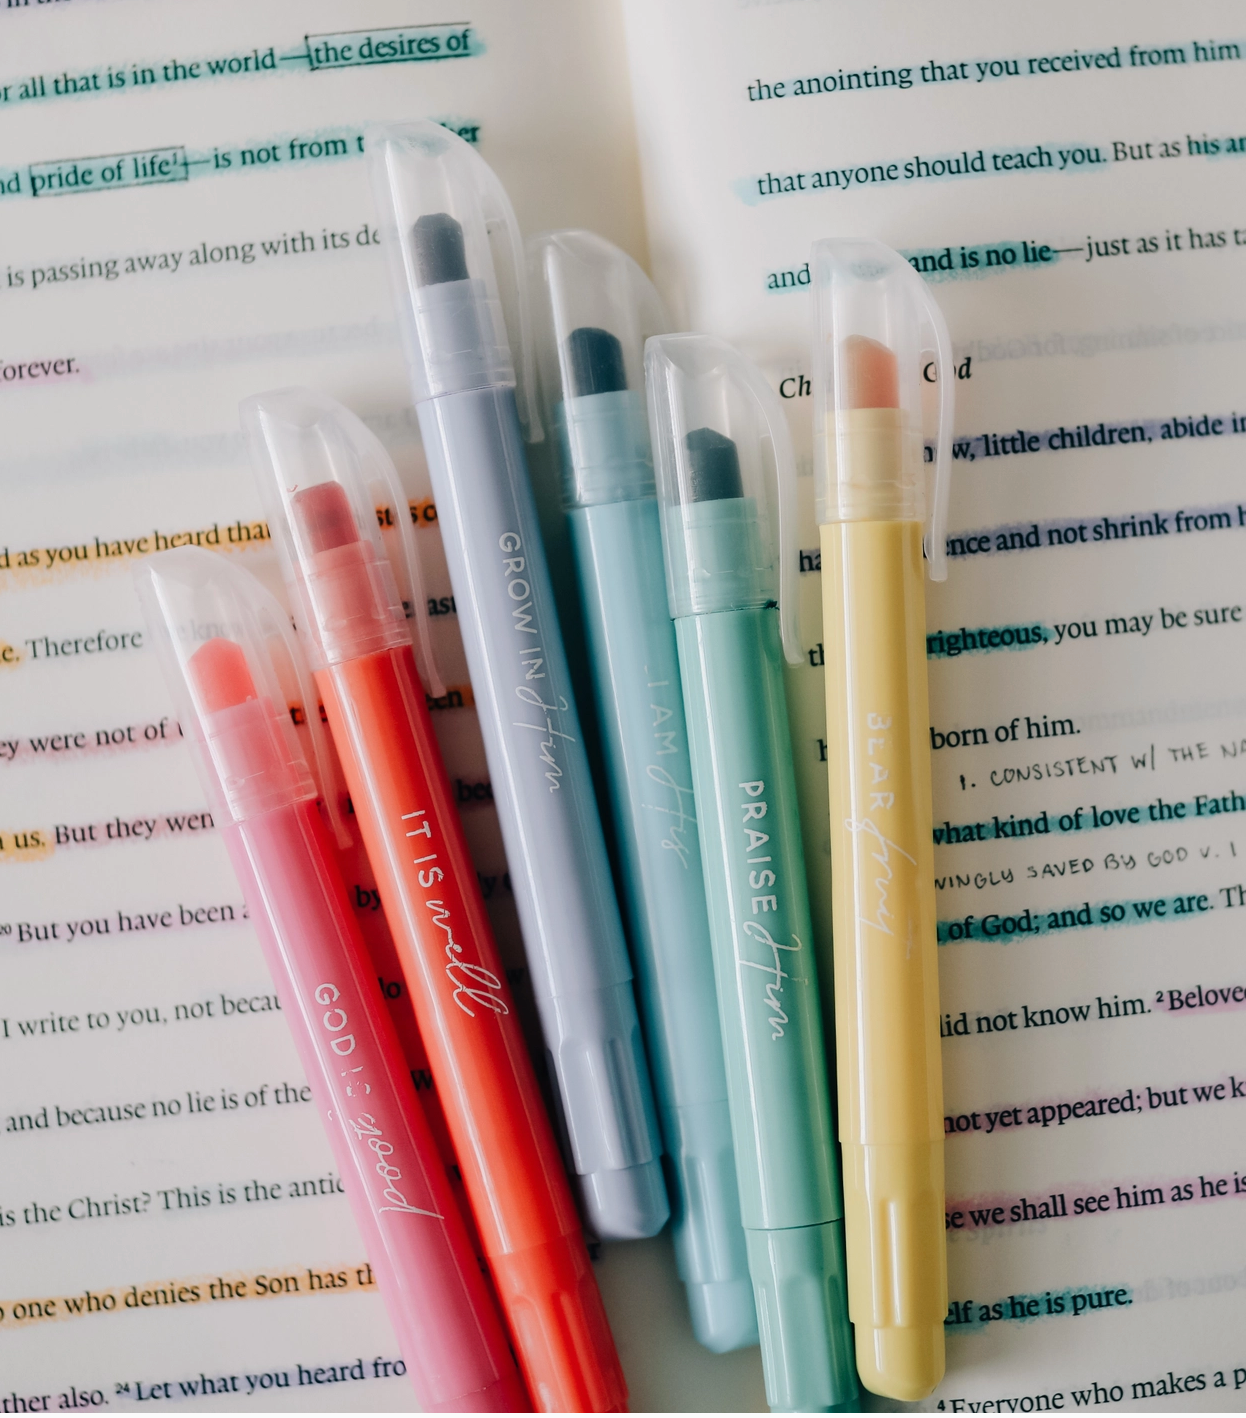 all that is in the world—the desires of
pride of life¹—is not from
is passing away along with its
forever.
as you have heard that
Therefore
were not of
us. But they
²⁰ But you have been
by
I write to you, not
and because no lie is of the
is the Christ? This is the
one who denies the Son has
also. ²⁴ Let what you heard
the anointing that you received from him
that anyone should teach you. But as his
and and is no lie—just as it has
God
little children, abide
and not shrink from
righteous, you may be sure
born of him.
1. CONSISTENT W/ THE
what kind of love the
SAVED BY GOD V. 1
of God; and so we are.
not know him. ²
not yet appeared; but we
we shall see him as he is
as he is pure.
⁴ Everyone who makes a
GOD IS good
IT IS well
GROW IN Him
I AM His
PRAISE Him
BEAR fruit